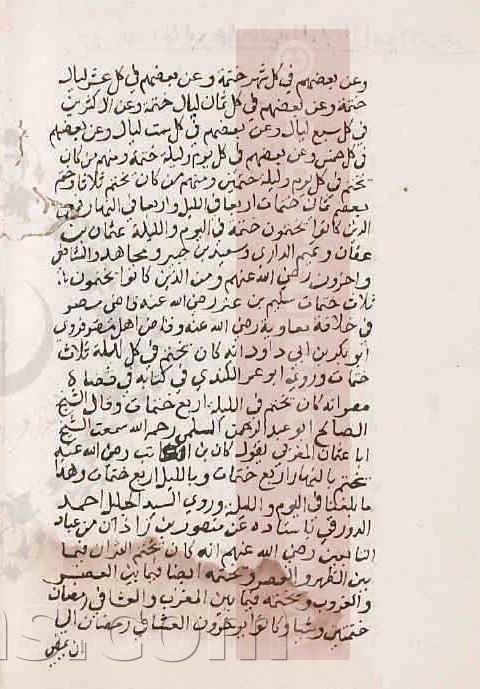 وعن بعضهم في كل شهر ختمة وعن بعضهم في كل عشر ليال
ختمة وعن بعضهم في كل ثمان ليال ختمة وعن الاكثرين
في كل سبع ليال وعن بعضهم في كل ست ليال وعن بعضهم
في كل خمس وعن بعضهم في كل يوم وليلة ختمة ومنهم من كان
يختم في كل يوم وليلة ختمتين ومنهم من كان يختم ثلاثا وختم
بعضهم ثمان ختمات اربعا في الليل واربعا في النهار فمن
الذين كانوا يختمون ختمة في اليوم والليلة عثمان بن
عفان وتميم الداري وسعيد بن جبير ومجاهد والشافعي
واخرون رضي الله عنهم ومن الذين كانوا يختمون
ثلاث ختمات سليم بن عتر رضي الله عنه قاضي مصر
في خلافة معاوية رضي الله عنه وقاص اهل مصر فروى
ابو بكر بن ابي داود انه كان يختم في كل ليلة ثلاث
ختمات وروى ابو عمر الكندي في كتابه في قضاة
مصر انه كان يختم في الليلة اربع ختمات وقال الشيخ
الصالح ابو عبد الرحمن السلمي رحمه الله سمعت الشيخ
ابا عثمان المغربي يقول كان بن الكاتب رضي الله عنه
يختم بالنهار اربع ختمات وبالليل اربع ختمات وهذا
ما بلغنا في اليوم والليلة وروى السيد الجليل احمد
الدورقي باسناده عن منصور بن زاذان من عباد
التابعين رضي الله عنهم انه كان يختم القران فيما
بين الظهر والعصر ويختمه ايضا فيما بين العصر
والغروب ويختمه فيما بين المغرب والعشا في رمضان
ختمتين وشيا وكانوا يوخرون العشا في رمضان الى
ان يمضي